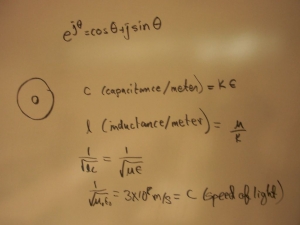 e^jθ = cosθ + j sinθ
c (capacitance/meter) = K ε
l (inductance/meter) = μ/K
1/√lc = 1/√με
1/√μ₀ε₀ = 3×10⁸ m/s = C (speed of light)